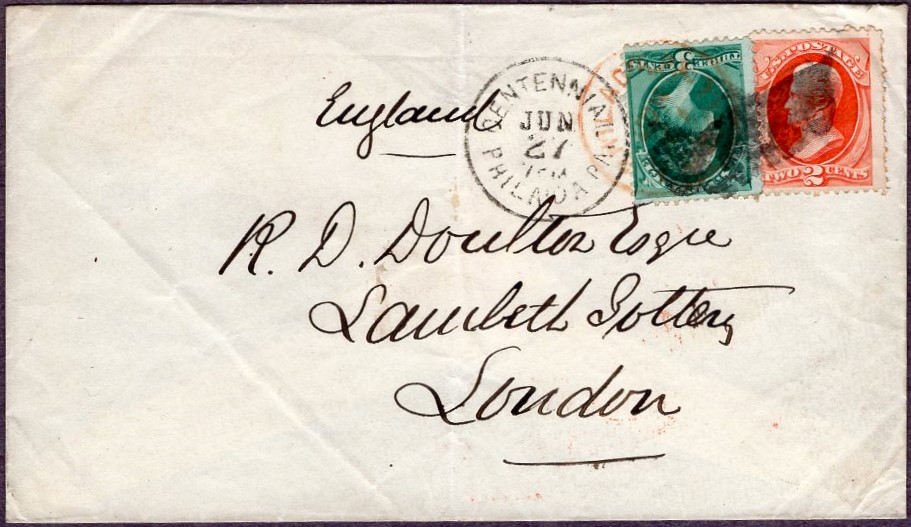 England
CENTENNIAL
JUN
27
PHILADA PA
3
U.S. POSTAGE
TWO 2 CENTS
R. D. Doulton Esqre
Lambeth Pottery
London